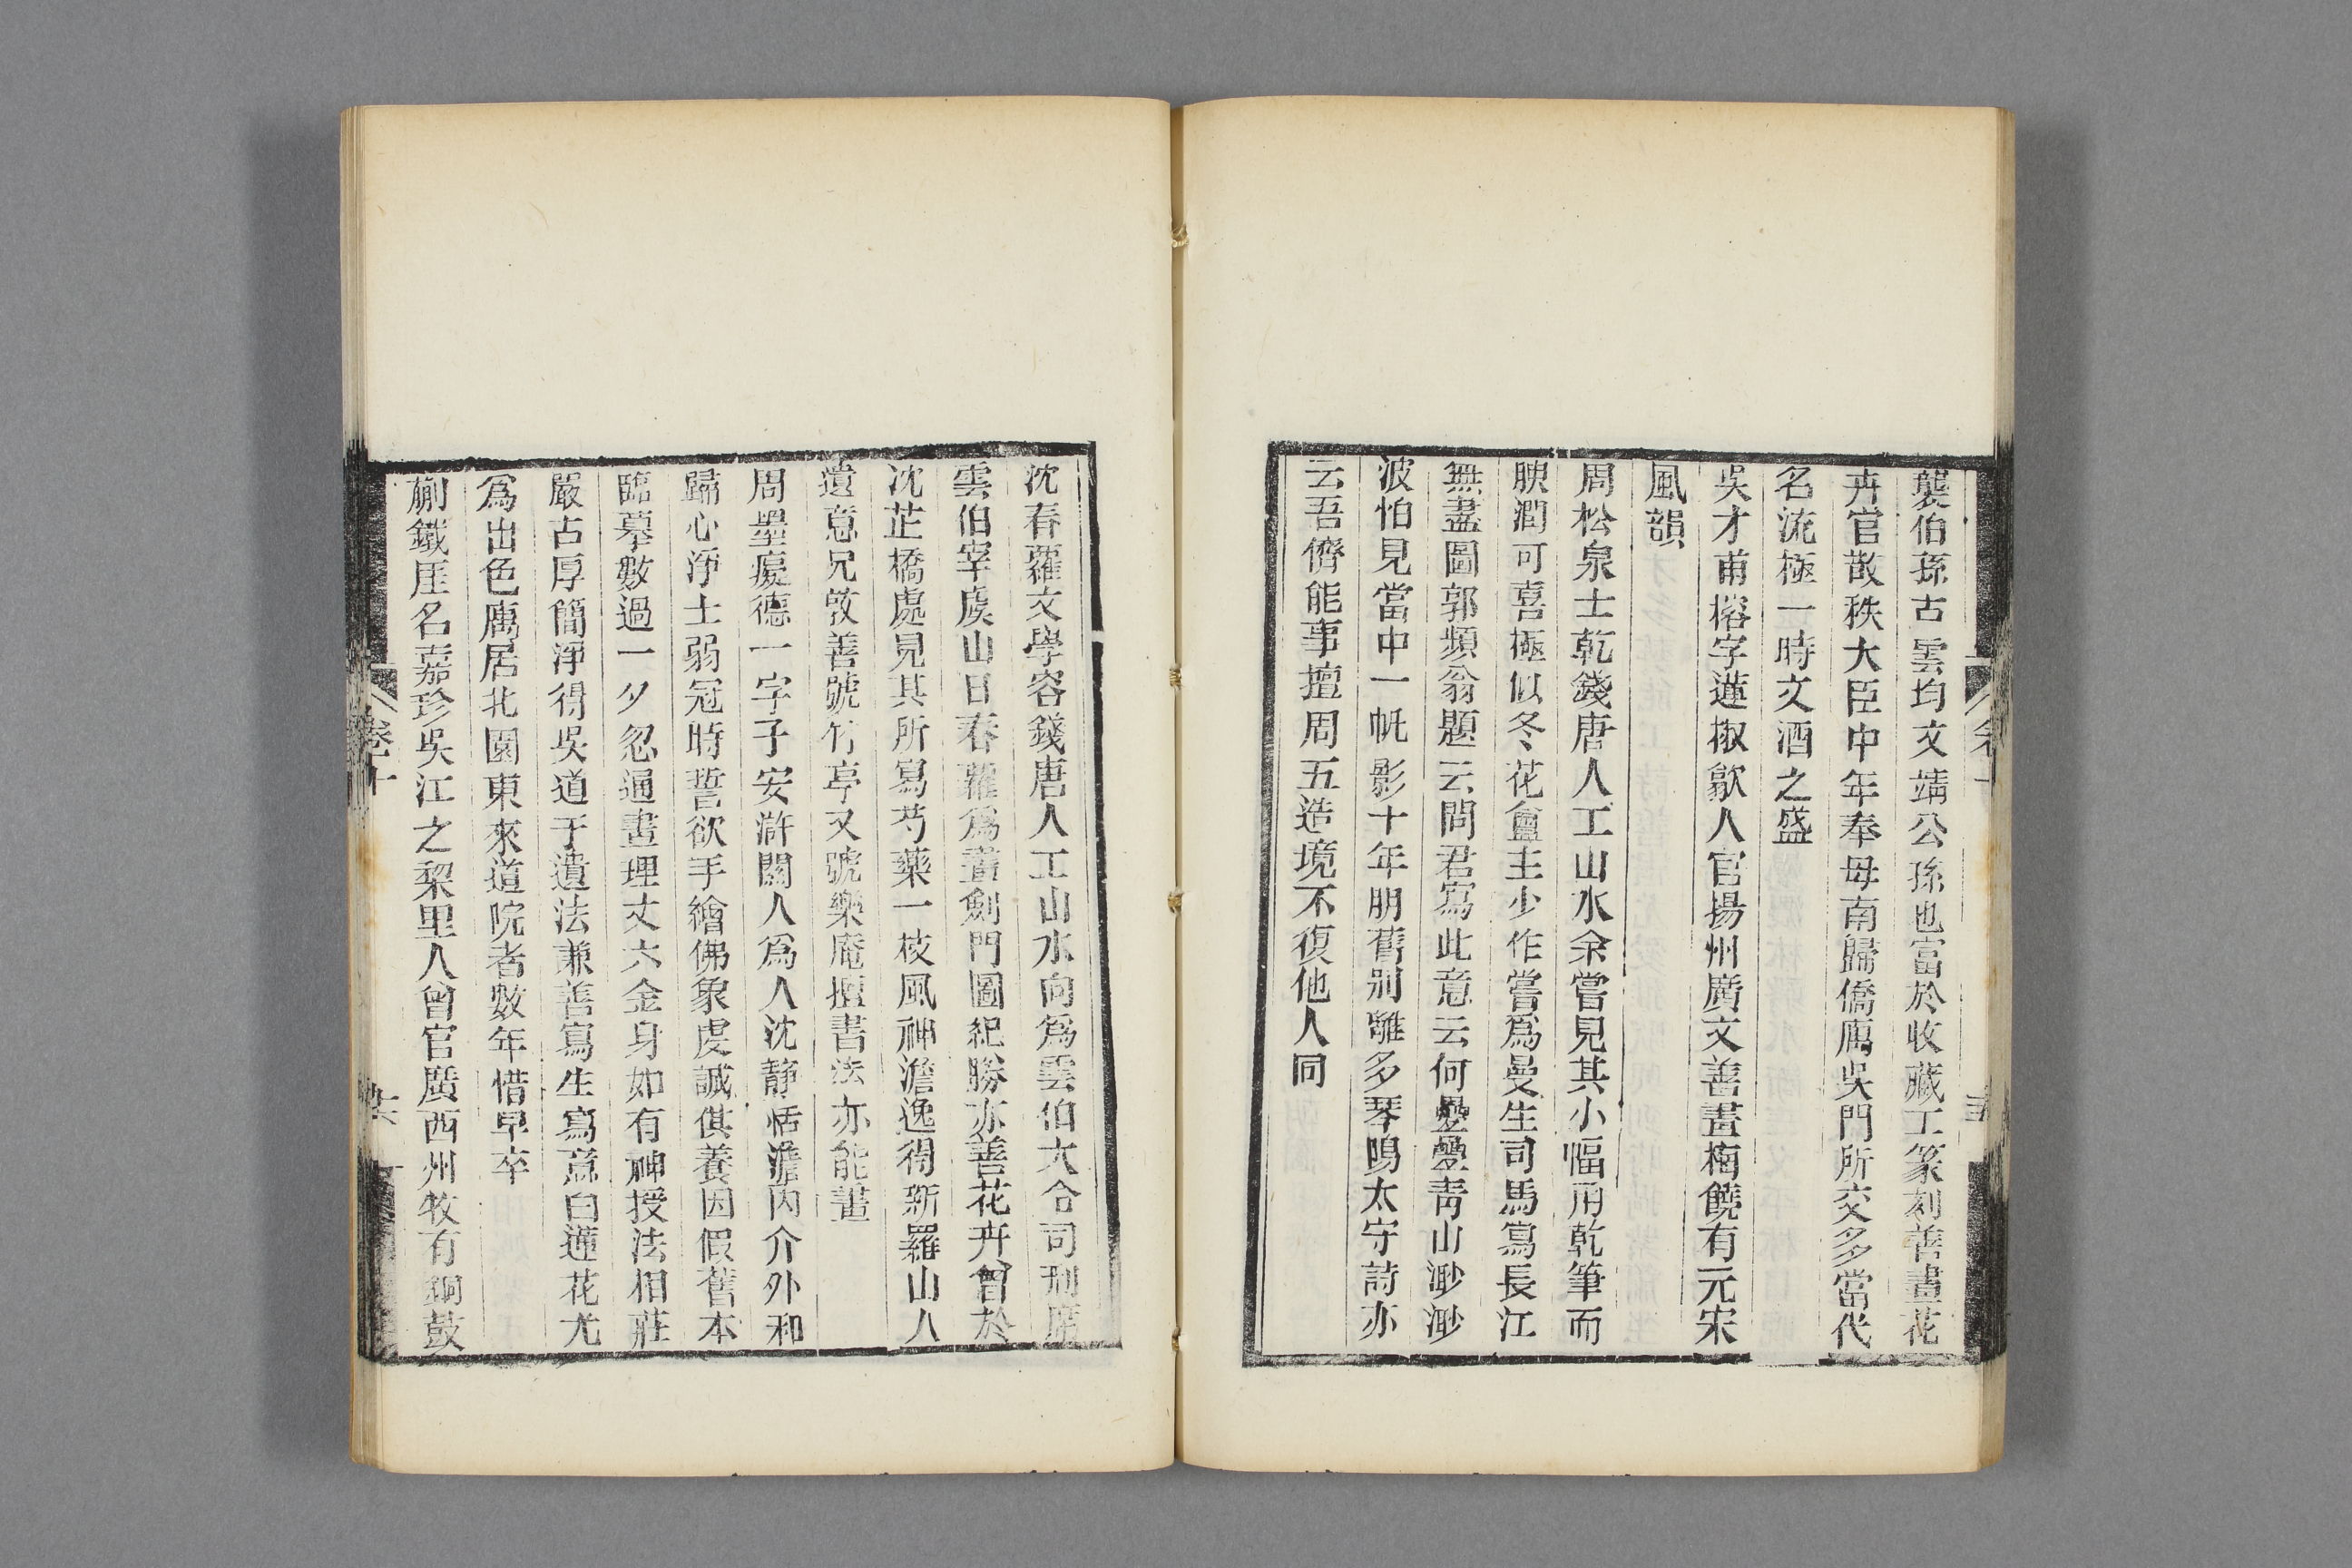 襲伯孫古雲均文靖公孫也富於收藏工篆刻善畫花
卉官散秩大臣中年奉母南歸僑寓吳門所交多當代
名流極一時文酒之盛
吳才甫榕字蓮椒歙人官揚州廣文善畫梅饒有元宋
風韻
周松泉士乾錢唐人工山水余嘗見其小幅用乾筆而
腴潤可喜極似冬花盦主少作嘗爲曼生司馬寫長江
無盡圖郭頻翁題云問君寫此意云何疊疊青山渺渺
波怕見當中一帆影十年朋舊別離多琴隝太守詩亦
云吾儕能事擅周五造境不復他人同
沈春蘿文學容錢唐人工山水向爲雲伯大令司刑席
雲伯宰虞山日春蘿爲畫劍門圖紀勝亦善花卉曾於
沈芷橋處見其所寫芍藥一枝風神澹逸得新羅山人
遺意兄敦善號竹亭又號樂庵擅書法亦能畫
周墨癡德一字子安滸關人爲人沈靜恬澹內介外和
歸心淨土弱冠時誓欲手繪佛象虔誠供養因假舊本
臨摹數過一夕忽通畫理丈六金身如有神授法相莊
嚴古厚簡淨得吳道子遺法兼善寫生寫意白蓮花尤
爲出色寓居北園東來道院者數年惜早卒
蒯鐵厓名嘉珍吳江之棃里人曾官廣西州牧有銅鼓
卷十